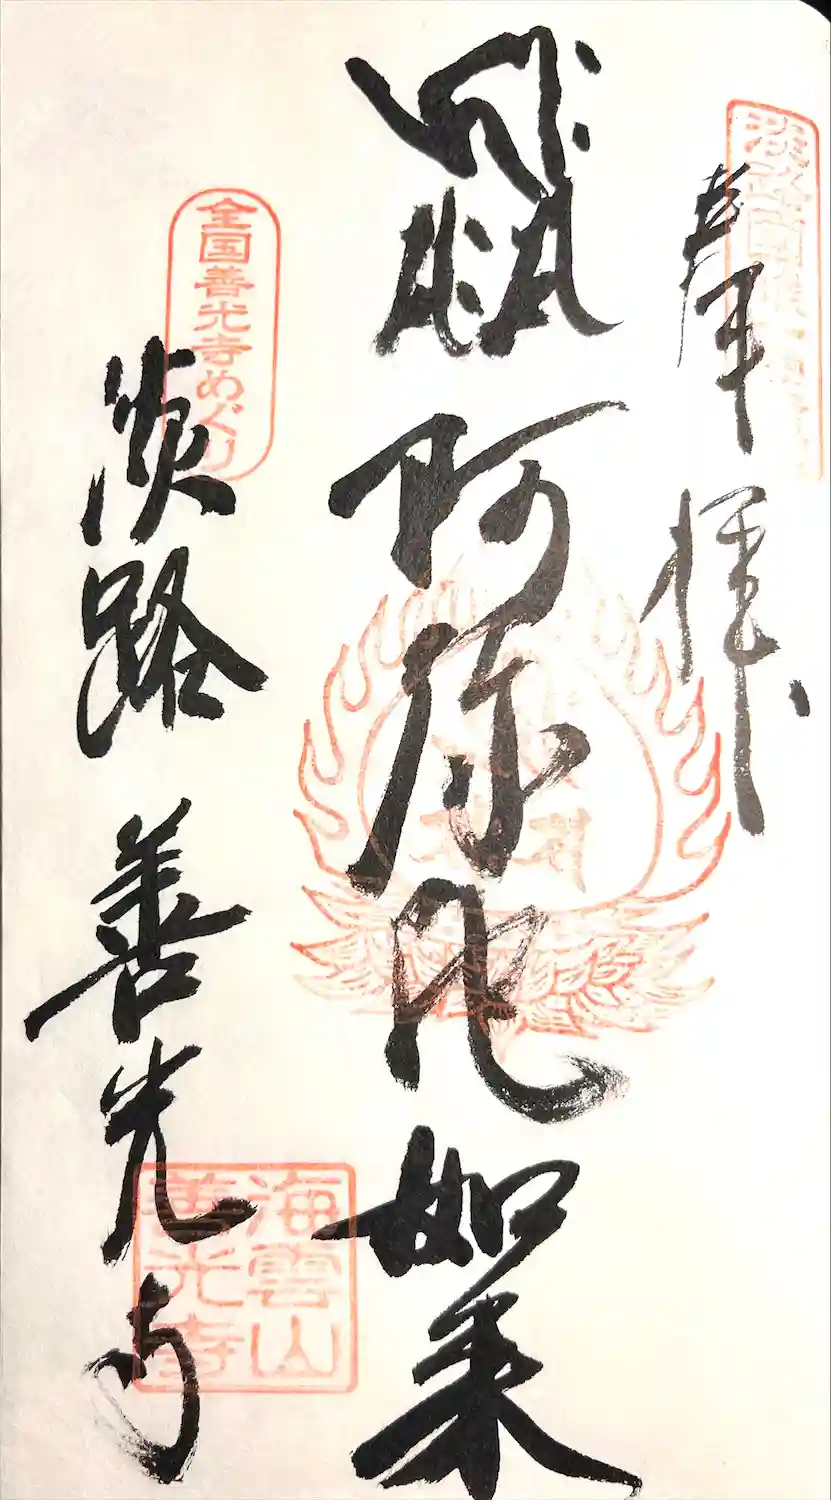 淡路西国
奉拝
阿弥陀如来
全国善光寺めぐり
淡路 善光寺
海雲山
善光寺